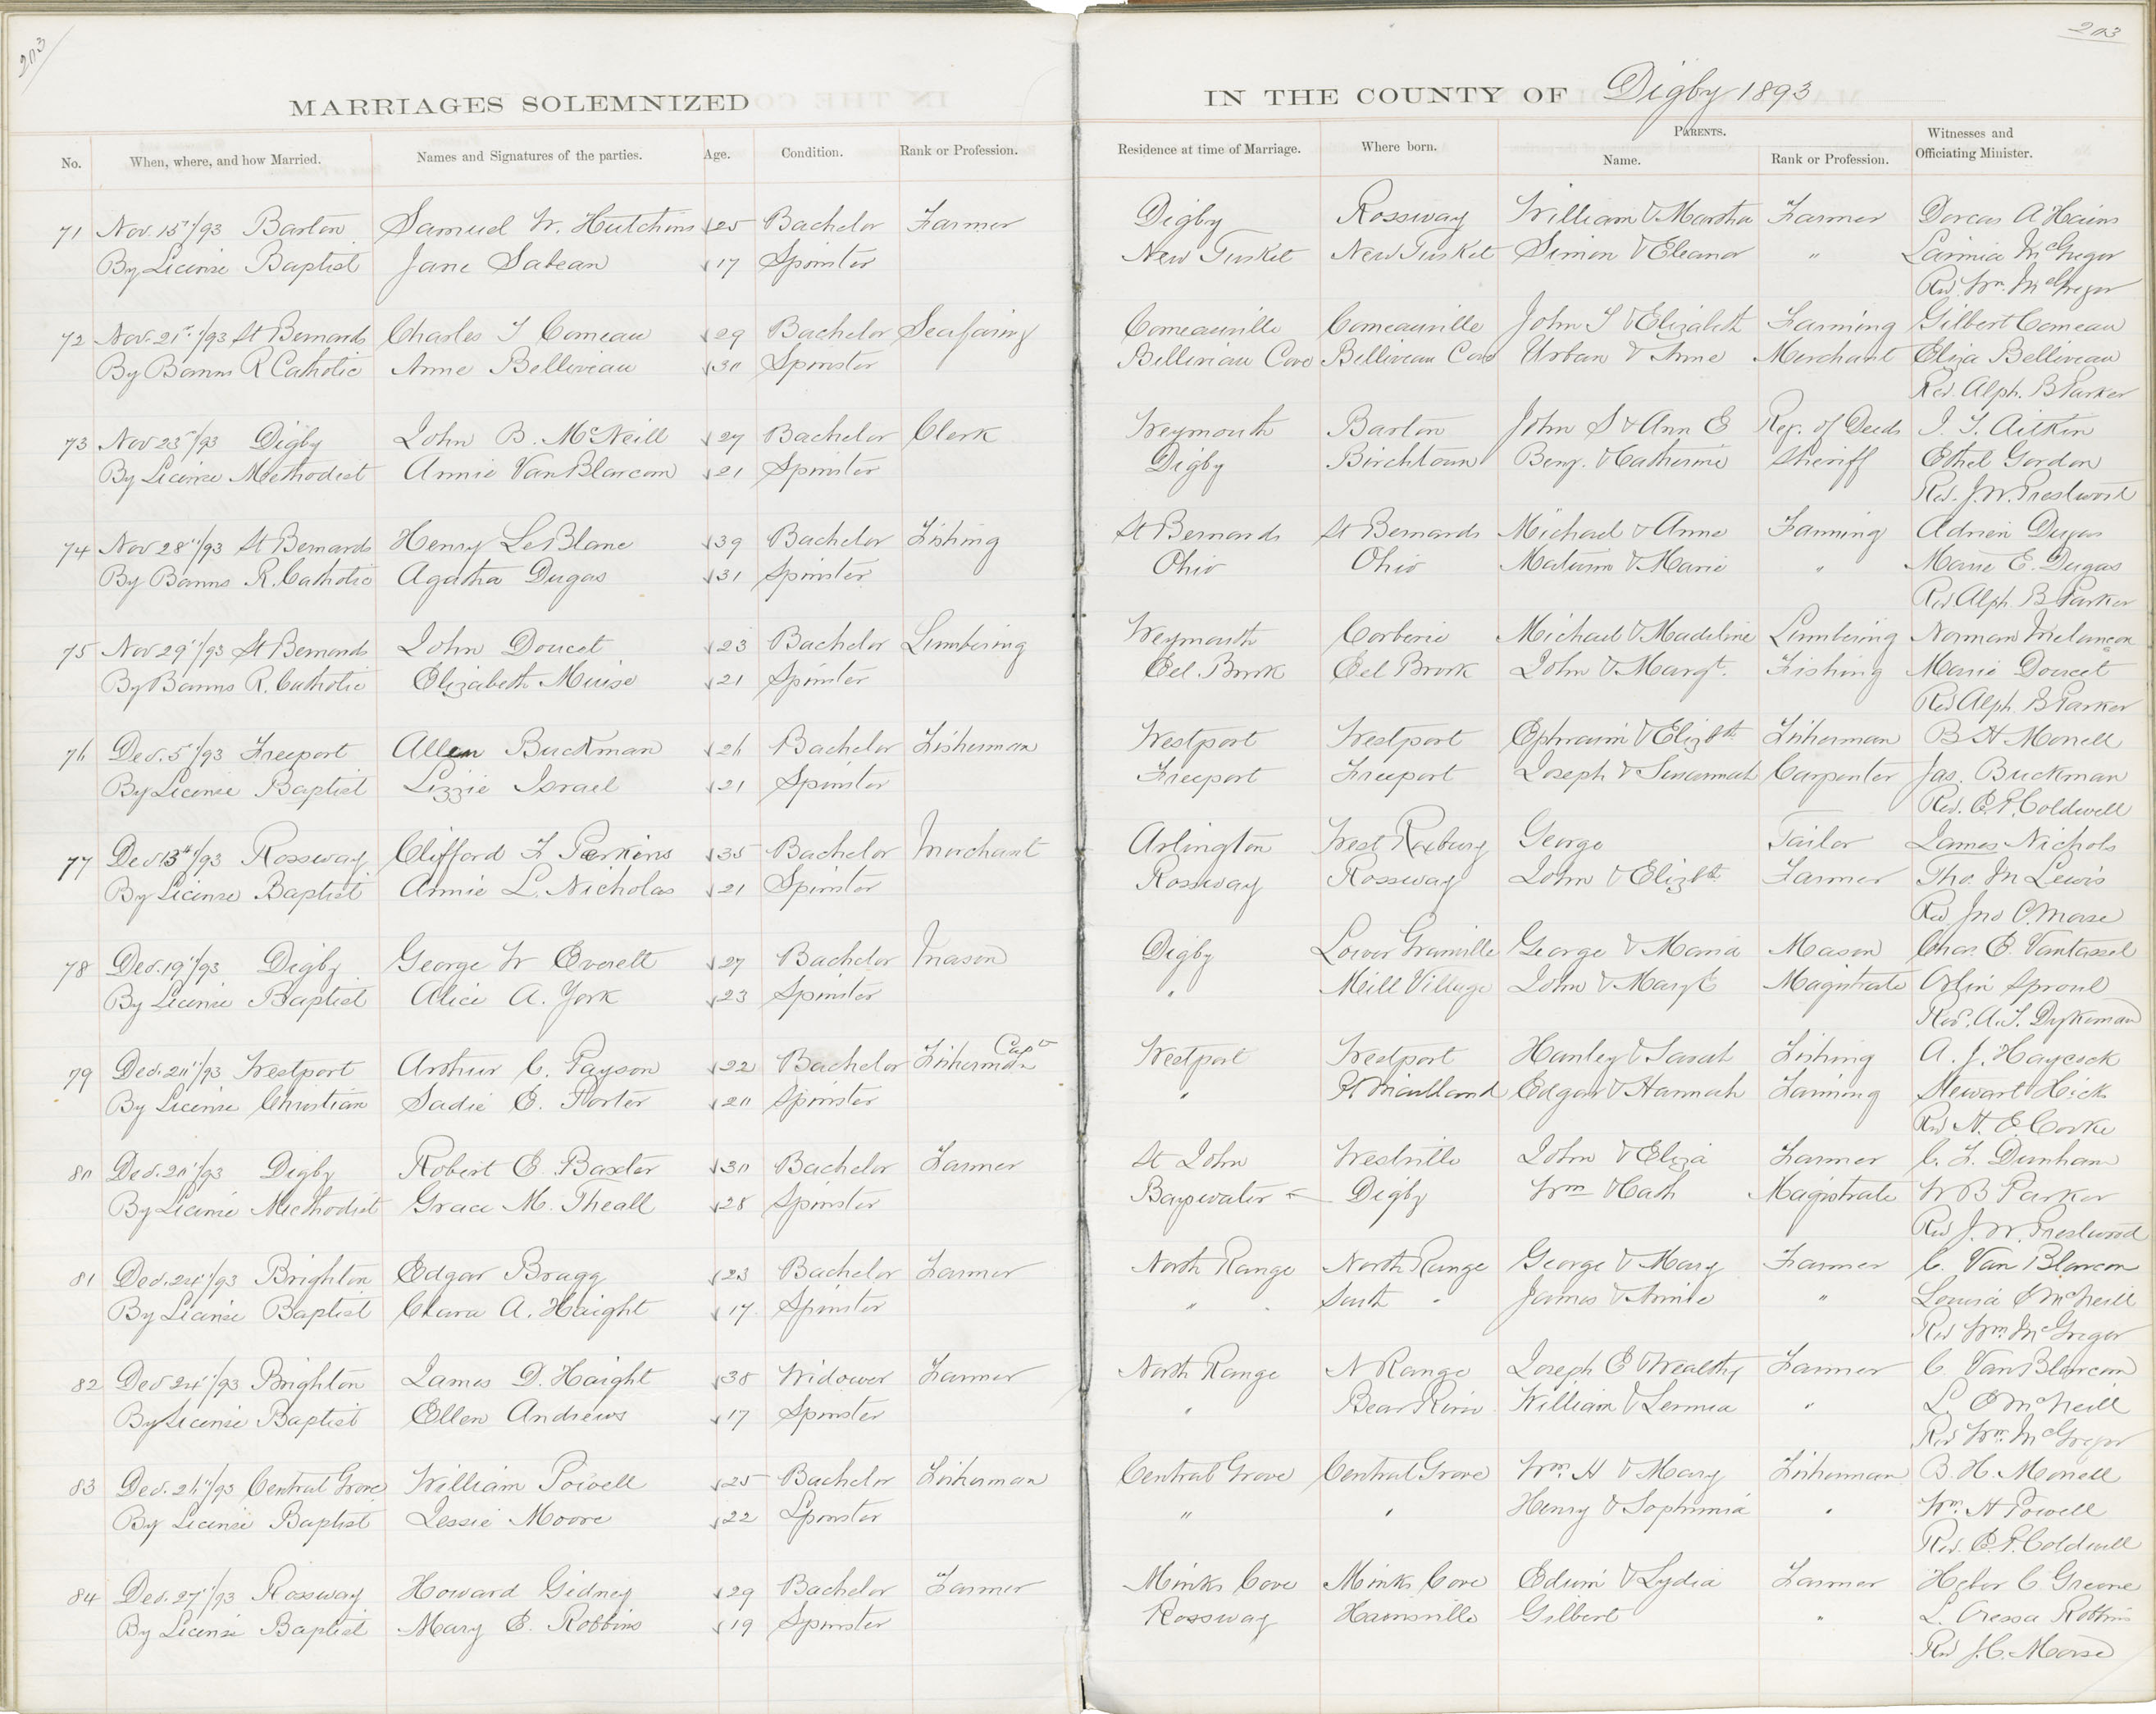 203
203
MARRIAGES SOLEMNIZED
IN THE COUNTY OF Digby 1893
No. When, where, and how Married. Names and Signatures of the parties. Age. Condition. Rank or Profession. Residence at time of Marriage. Where born. PARENTS. Name. Rank or Profession. Witnesses and Officiating Minister.
71 Nov. 15"/93 Barton Samuel W. Hutchins 25 Bachelor Farmer Digby Rossway William & Martha Farmer Dorcas A Hains
By License Baptist Jane Sabean 17 Spinster New Tusket New Tusket Simon & Eleanor " Lavinia McGregor
Rev. Wm. McGregor
72 Nov. 21st/93 St Bernards Charles T Comeau 29 Bachelor Seafaring Comeauville Comeauville John S & Elizabeth Farming Gilbert Comeau
By Banns R Catholic Anne Belliveau 30 Spinster Belliveau Cove Belliveau Cove Urban & Anne Merchant Eliza Belliveau
Rev. Alph. B Parker
73 Nov 23"/93 Digby John B. McNeill 27 Bachelor Clerk Weymouth Barton John S & Ann E Reg. of Deeds J. T. Aitken
By License Methodist Annie VanBlarcom 21 Spinster Digby Birchtown Benj. & Catherine Sheriff Ethel Gordon
Rev. J. W. Prestwood
74 Nov 28"/93 St Bernards Henry LeBlanc 39 Bachelor Fishing St Bernards St Bernards Michael & Anne Farming Adrien Dugas
By Banns R. Catholic Agatha Dugas 31 Spinster Ohio Ohio Maturin & Marie " Marie E. Dugas
Rev Alph B Parker
75 Nov 29"/93 St Bernards John Doucet 23 Bachelor Lumbering Weymouth Corberie Michael & Madeline Lumbering Norman Melancon
By Banns R. Catholic Elizabeth Muise 21 Spinster Eel Brook Eel Brook John & Margt. Fishing Marie Doucet
Rev Alph. B Parker
76 Dec. 5"/93 Freeport Allen Buckman 26 Bachelor Fisherman Westport Westport Ephraim & Elizbth Fisherman B H Morrell
By License Baptist Lizzie Israel 21 Spinster Freeport Freeport Joseph & Susannah Carpenter Jas. Buckman
Rev. E. P. Coldwell
77 Dec 13th/93 Rossway Clifford F Perkins 35 Bachelor Merchant Arlington West Roxbury George Tailor James Nichols
By License Baptist Annie L. Nicholas 21 Spinster Rossway Rossway John & Elizbth Farmer Tho. M Lewis
Rev Jno C. Morse
78 Dec. 19"/93 Digby George W Everett 27 Bachelor Mason Digby Lower Granville George & Maria Mason Chas. E. Vantassel
By License Baptist Alice A. York 23 Spinster " Mill Village John & Margt Magistrate Orlin Sproul
Rev. A. T. Dykeman
79 Dec. 20"/93 Westport Arthur C. Payson 22 Bachelor Fisherman Capt Westport Westport Hanley & Sarah Fishing A. J. Haycock
By License Christian Sadie E. Porter 20 Spinster " Pt Maitland Edgar & Hannah Farming Stewart Hicks
Rev H. E Cooke
80 Dec. 20"/93 Digby Robert E. Baxter 30 Bachelor Farmer St John Westville John & Eliza Farmer C. F. Dunham
By License Methodist Grace M. Theall 28 Spinster Bayswater Digby Wm & Cath Magistrate W B Parker
Rev J. W. Prestwood
81 Dec. 24"/93 Brighton Edgar Bragg 23 Bachelor Farmer North Range North Range George & Mary Farmer C. Van Blarcom
By License Baptist Clara A. Haight 17 Spinster " " South " James & Annie " Louisa E McNeill
Rev Wm. McGregor
82 Dec 24"/93 Brighton James D. Haight 38 Widower Farmer North Range N Range Joseph E & Wealthy Farmer C. VanBlarcom
By License Baptist Ellen Andrews 17 Spinster " Bear River William & Lermia " L. E McNeill
Rev Wm. McGregor
83 Dec. 26"/93 Central Grove William Powell 25 Bachelor Fisherman Central Grove Central Grove Wm. H & Mary Fisherman B. H. Morrell
By License Baptist Jessie Moore 22 Spinster " " Henry & Sophronia " Wm. H Powell
Rev. E. P. Coldwell
84 Dec. 27"/93 Rossway Howard Gidney 29 Bachelor Farmer Minks Cove Minks Cove Edwin & Lydia Farmer Hector C Greene
By License Baptist Mary E. Robbins 19 Spinster Rossway Hainsville Gilbert " L. Cressa Robbins
Rev J. C. Morse